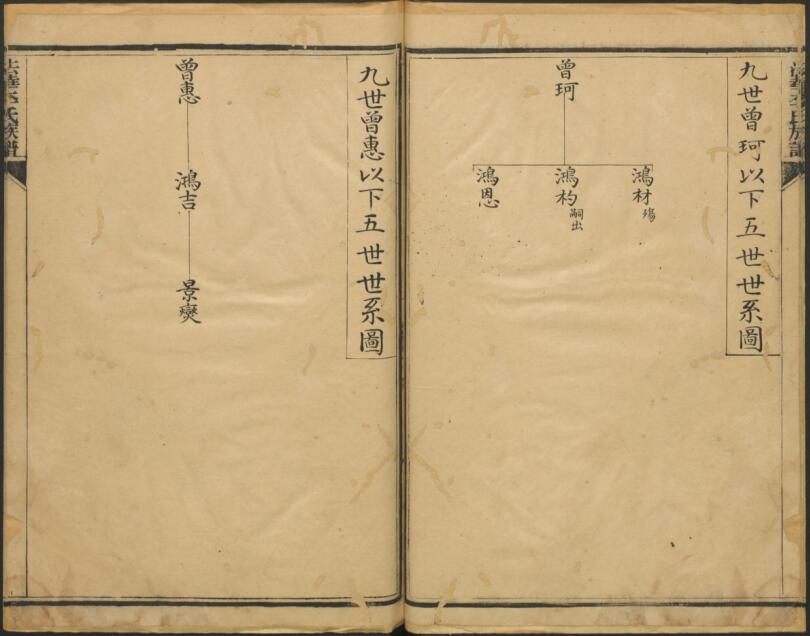 九世曾珂以下五世世系圖
曾珂
鴻材殤
鴻杓嗣出
鴻恩
九世曾惠以下五世世系圖
曾惠
鴻吉
景燮